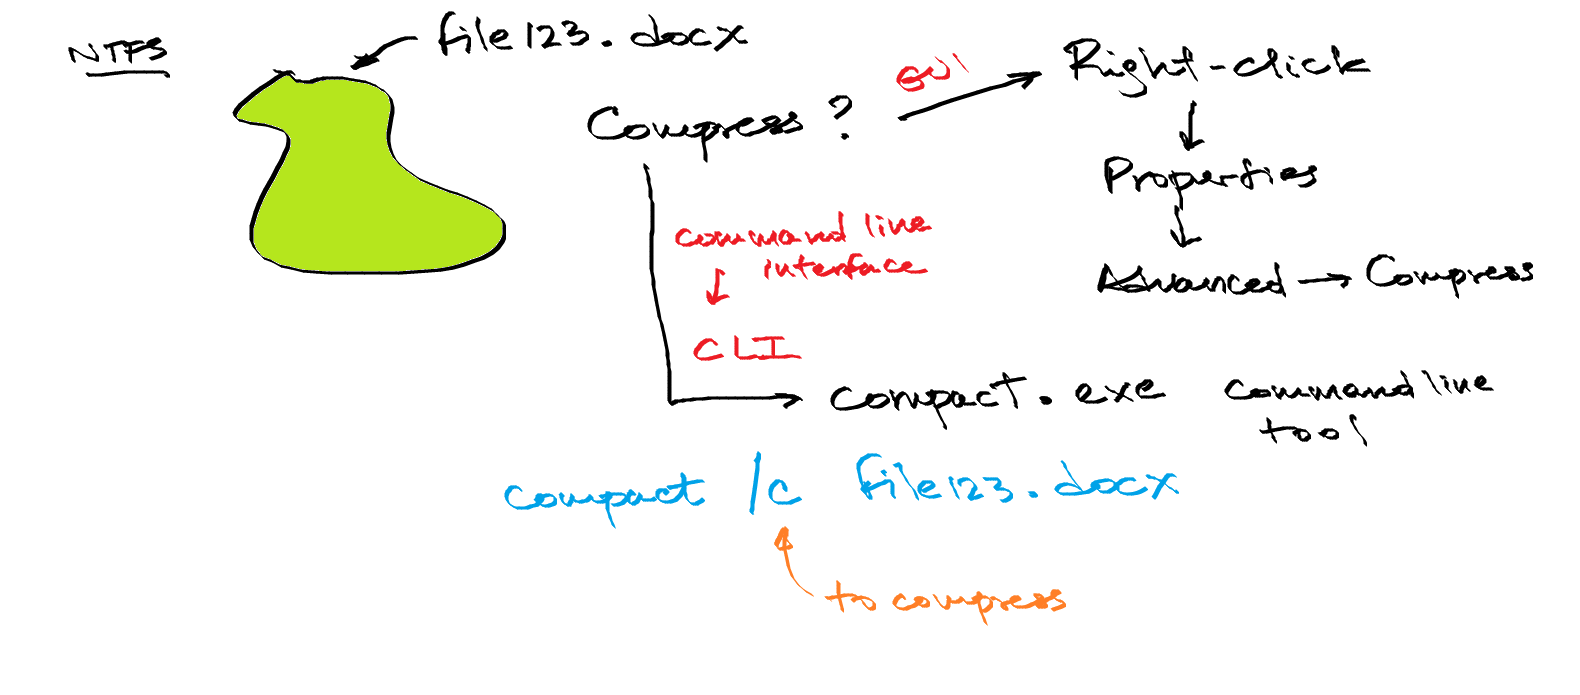 NTFS
file123.docx
Compress?
GUI
Right-click
Properties
Advanced → Compress
command line
interface
CLI
compact.exe
command line
tool
compact /c file123.docx
to compress